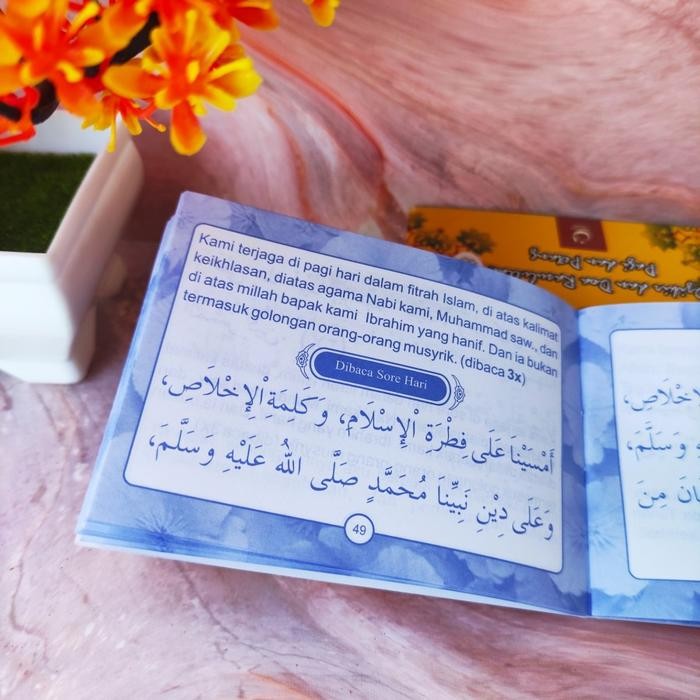 Kami terjaga di pagi hari dalam fitrah Islam, di atas kalimat
keikhlasan, diatas agama Nabi kami, Muhammad saw., dan
di atas millah bapak kami Ibrahim yang hanif. Dan ia bukan
termasuk golongan orang-orang musyrik. (dibaca 3x)
Dibaca Sore Hari
أَمْسَيْنَا عَلَى فِطْرَةِ الْإِسْلَامِ، وَكَلِمَةِ الْإِخْلَاصِ،
وَعَلَى دِيْنِ نَبِيِّنَا مُحَمَّدٍ صَلَّى اللهُ عَلَيْهِ وَسَلَّمَ،
49
وَسَلَّمَ،
مِنَ
Pagi dan Petang